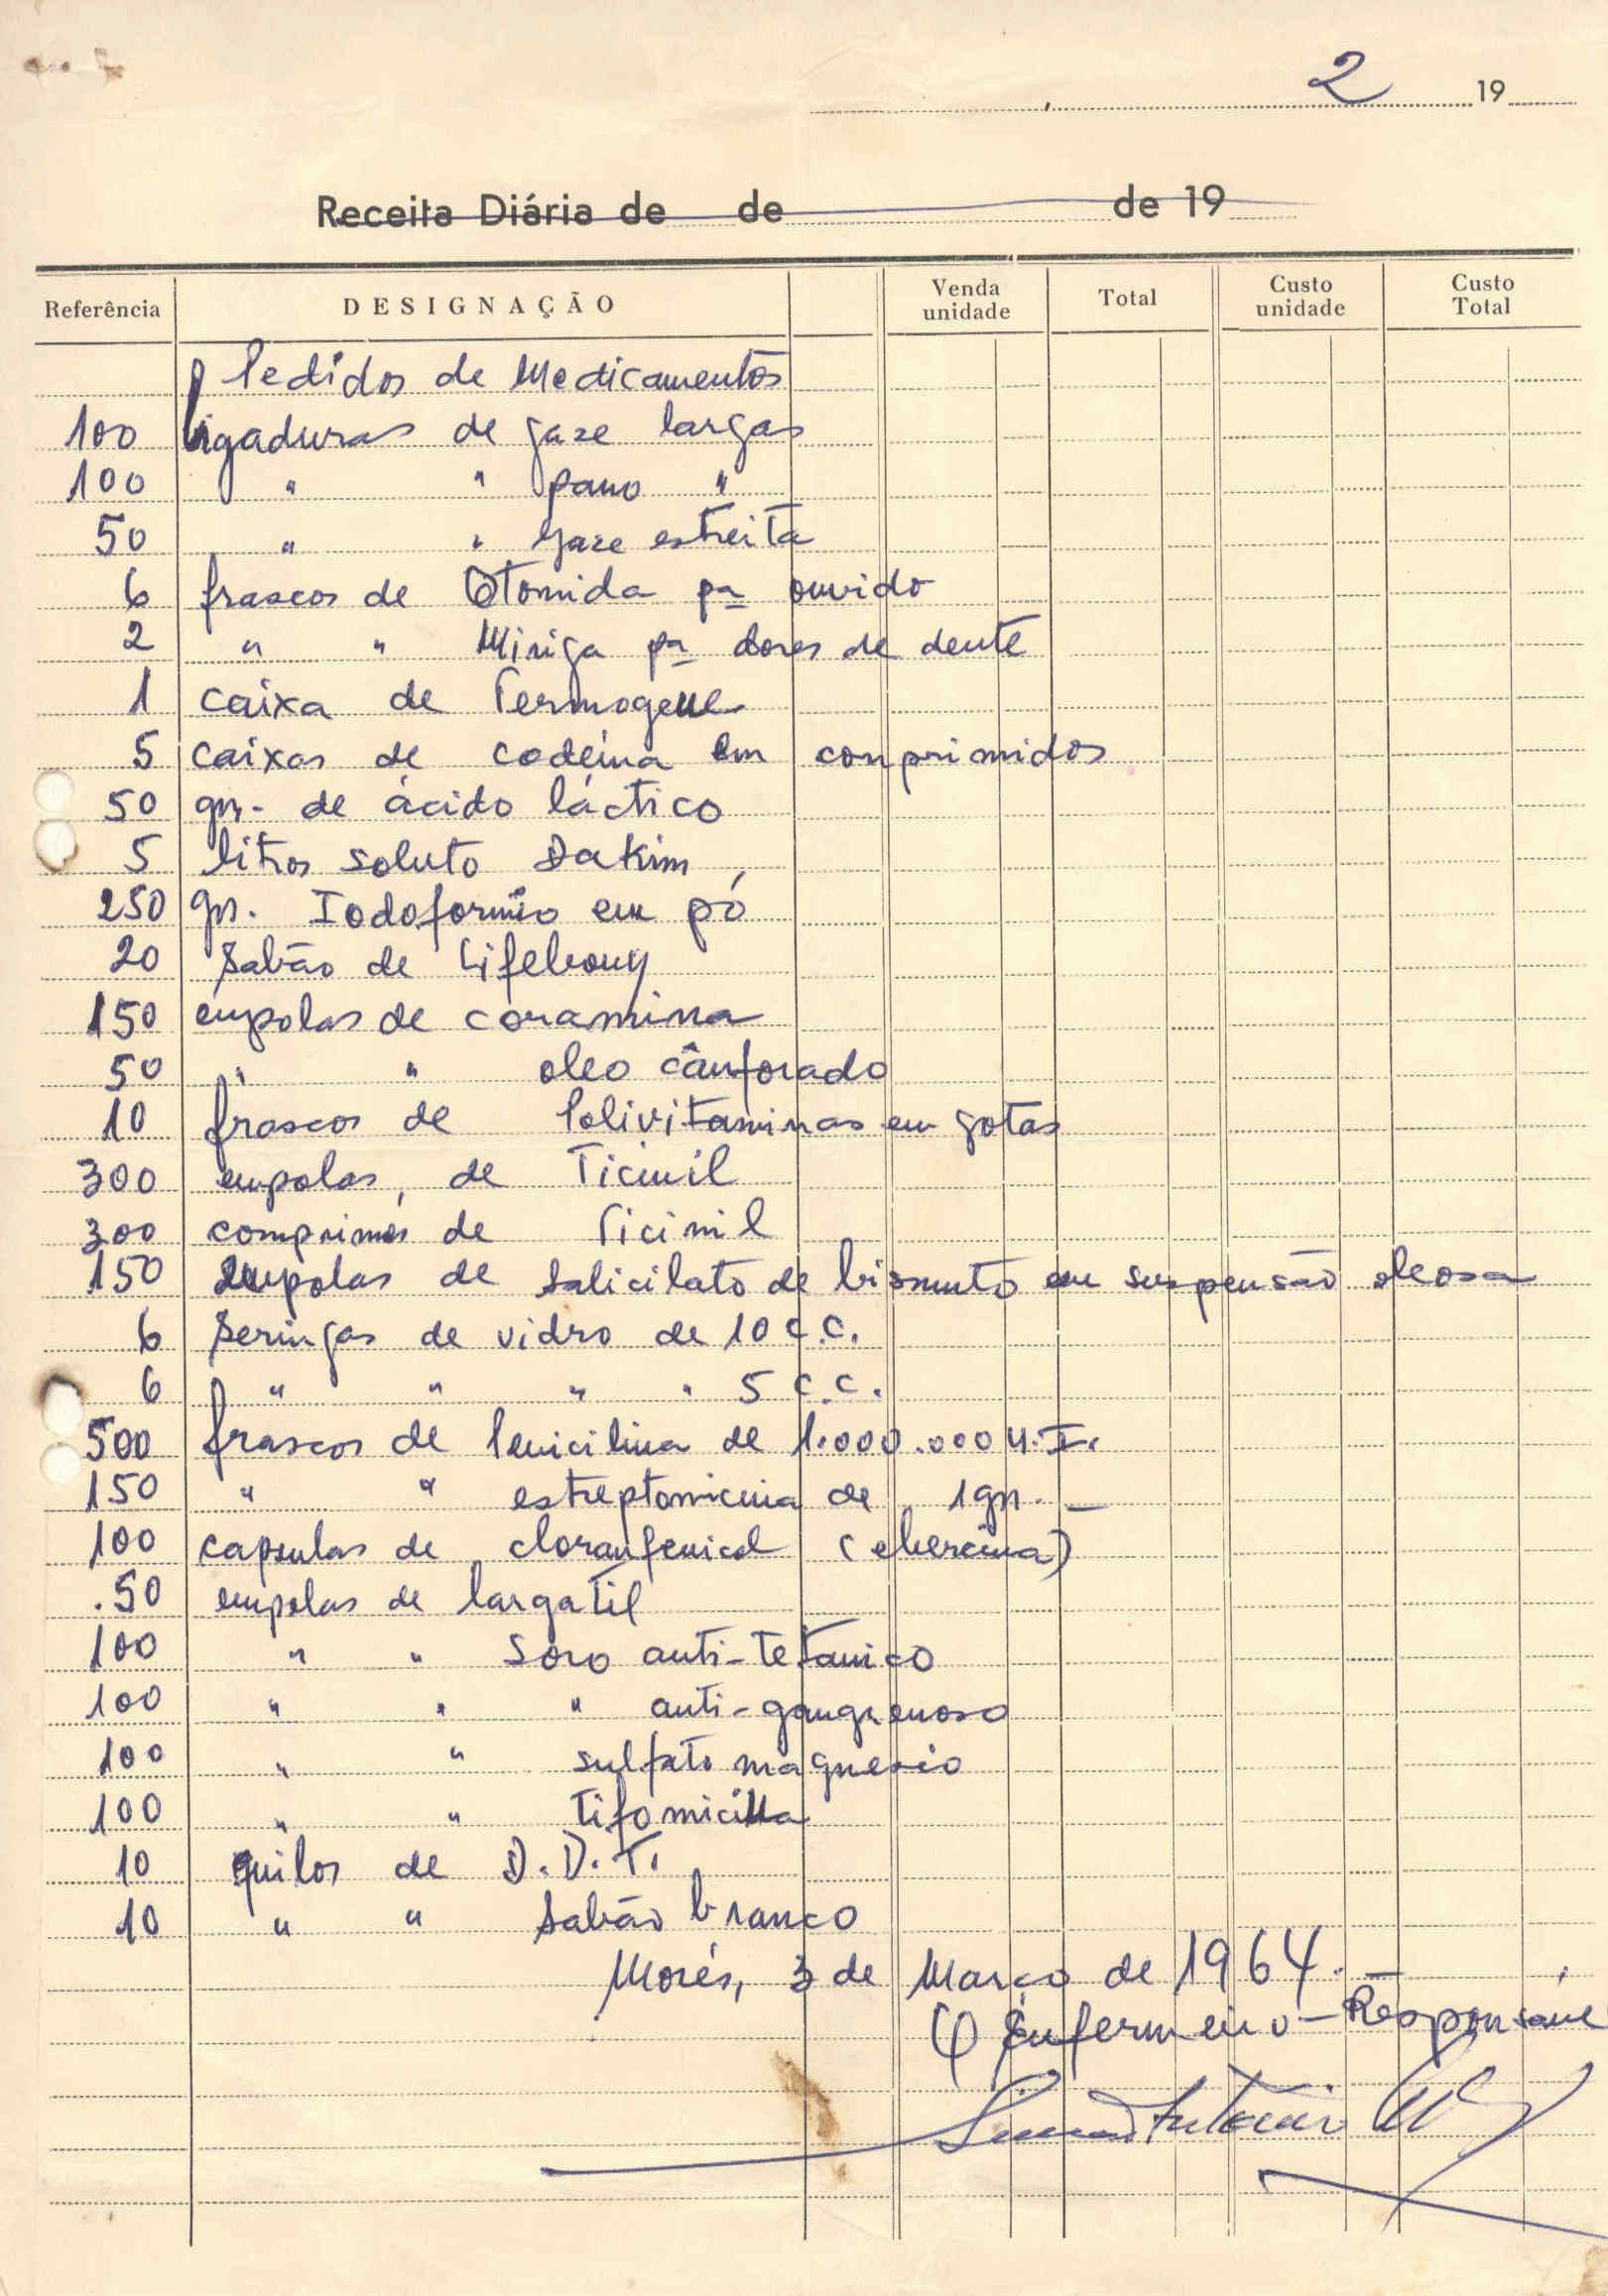 2 19
Receita Diária de de de 19
Referência DESIGNAÇÃO Venda unidade Total Custo unidade Custo Total
Pedidos de Medicamentos
100 ligaduras de gaze largas
100 " " pano "
50 " " gaze estreita
6 frascos de Otomida pª ouvido
2 " " Miriga pª dores de dente
1 caixa de Termogene
5 caixas de codeína em conprimidos
50 gr. de ácido láctico
5 litros soluto Dakim
250 gr. Iodoformio em pó
20 Sabão de Lifebouy
150 empolas de coramina
50 " " oleo cânforado
10 frascos de Polivitaminas em gotas
300 empolas, de Ticinil
300 comprimés de Ticinil
150 empolas de Salicilato de bismuto em suspensão oleosa
6 Seringas de vidro de 10 c.c.
6 " " " " 5 c.c.
500 frascos de Penicilina de 1.000.000 U.I.
150 " " estreptomicina de 1 gr. -
100 capsulas de cloranfenicol ( )
.50 empolas de largatil
100 " " Soro anti-tetanico
100 " " " anti-gangrenoso
100 " " sulfato magnesio
100 " " Tifomicina
10 quilos de D.D.T.
10 " " Sabão branco
Morés, 3 de Março de 1964. -
O Enfermeiro-Responsavel